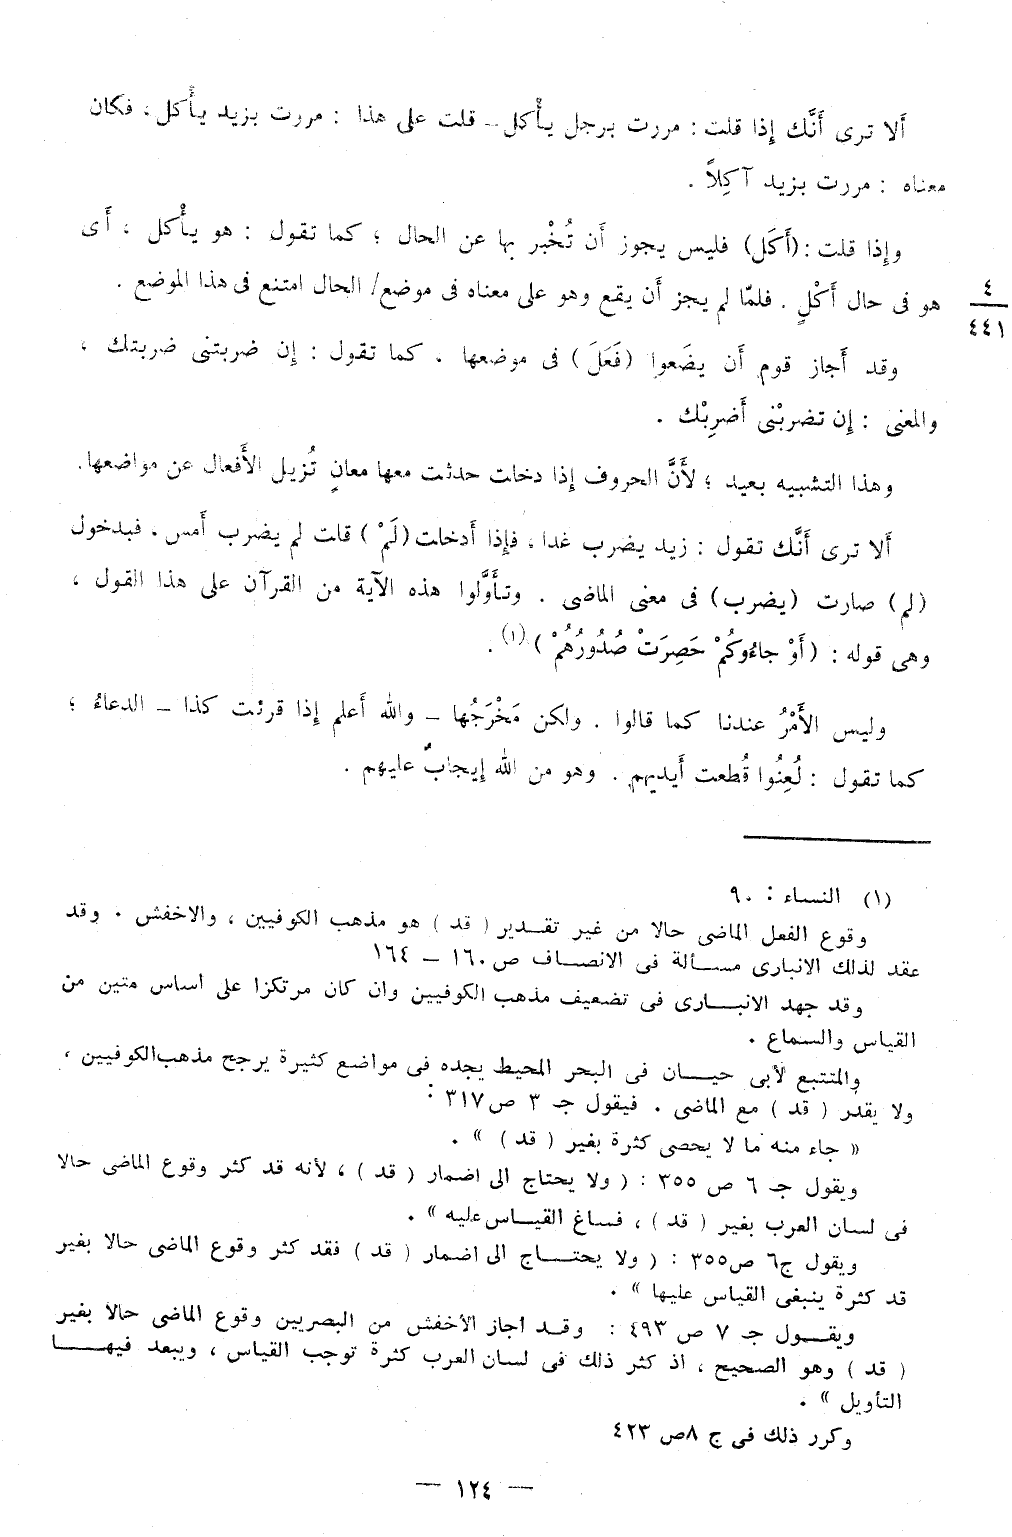 أَلا ترى أَنَّك إِذا قلت : مررت برجل يأْكل – قلت على هذا : مررت بزيد يأْكل ، فكان
معناه : مررت بزيد آكِلاً .
وإِذا قلت : (أَكَل) فليس يجوز أَن تُخْبر بها عن الحال ؛ كما تقول : هو يأْكل ، أَى
هو فى حال أَكْلٍ . فلمّا لم يجز أَن يقع وهو على معناه فى موضع/ الحال امتنع فى هذا الموضع .
٤
٤٤١
وقد أَجاز قوم أَن يضَعوا (فَعَلَ) فى موضعها . كما تقول : إِن ضربتنى ضربتك ،
والمعنى : إِن تضربْنى أَضرِبْك .
وهذا التشبيه بعيد ؛ لأَنَّ الحروف إِذا دخلت حدثت معها معانٍ تُزيل الأَفعال عن مواضعها.
أَلا ترى أَنَّك تقول : زيد يضرب غدا ، فإِذا أَدخلت (لَمْ) قلت لم يضرب أَمس . فبدخول
(لم) صارت (يضرب) فى معنى الماضى . وتأَوَّلوا هذه الآية من القرآن على هذا القول ،
وهى قوله : (أَوْ جاءُوكُمْ حَصِرَتْ صُدُورُهُمْ)(١) .
وليس الأَمْرُ عندنا كما قالوا . ولكن مَخْرَجُها – والله أَعلم إِذا قرئت كذا – الدعاءُ ؛
كما تقول : لُعِنُوا قُطعت أَيديهم . وهو من الله إِيجابٌ عليهم .
(١) النساء : ٩٠
وقوع الفعل الماضى حالا من غير تقــدير ( قد ) هو مذهب الكوفيين ، والاخفش . وقد
عقد لذلك الانبارى مســألة فى الانصــاف ص١٦٠ – ١٦٤
وقد جهد الانبــارى فى تضعيف مذهب الكوفيين وان كان مرتكزا على أساس متين من
القياس والسماع .
والمتتبع لأبى حيــان فى البحر المحيط يجده فى مواضع كثيرة يرجح مذهب الكوفيين ،
ولا يقدر ( قد ) مع الماضى . فيقول جـ ٣ ص٣١٧ :
« جاء منه ما لا يحصى كثرة بغير ( قد ) » .
ويقول جـ ٦ ص ٣٥٥ : ( ولا يحتاج الى اضمار ( قد ) ، لأنه قد كثر وقوع الماضى حالا
فى لسان العرب بغير ( قد ) ، فساغ القيــاس عليه » .
ويقول ج٦ ص٣٥٥ : ( ولا يحتــاج الى اضمار ( قد ) فقد كثر وقوع الماضى حالا بغير
قد كثرة ينبغى القياس عليها » .
ويقــول جـ ٧ ص ٤٩٣ : وقــد أجاز الأخفش من البصريين وقوع الماضى حالا بغير
( قد ) وهو الصحيح ، اذ كثر ذلك فى لسان العرب كثرة توجب القياس ، ويبعد فيهــا
التأويل » .
وكرر ذلك فى ج ٨ص ٤٢٣
— ١٢٤ —